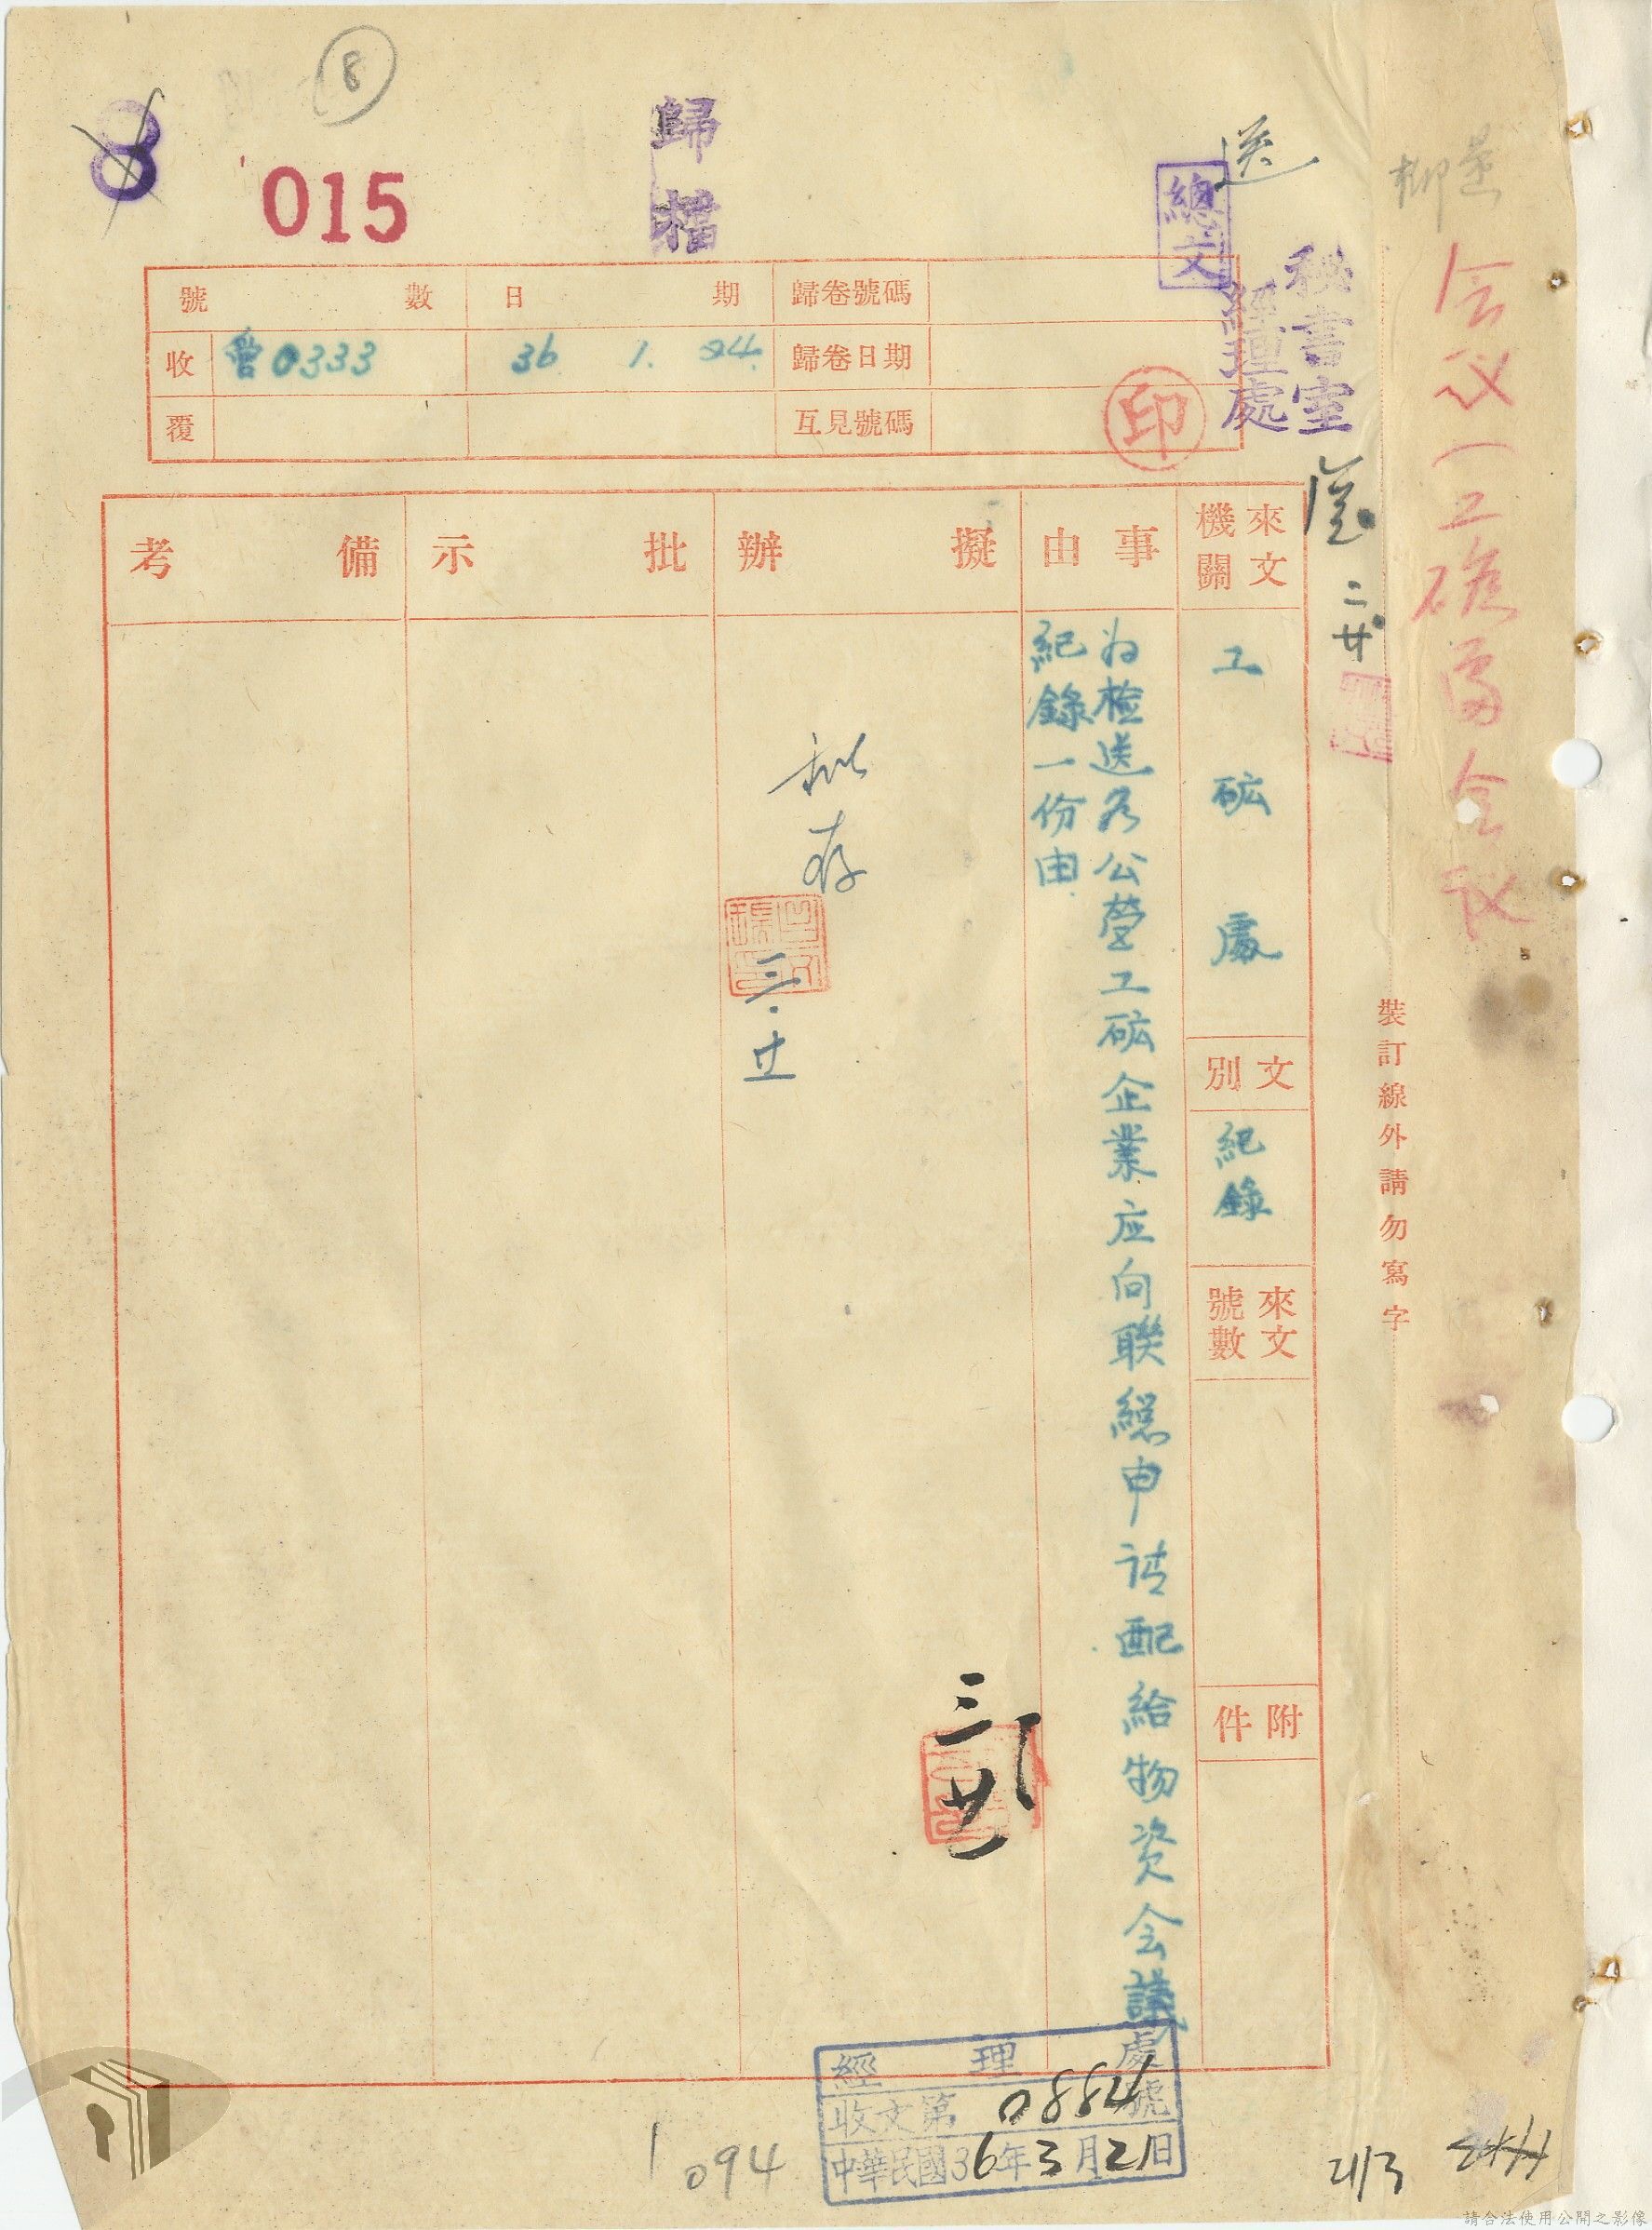 8
8
015
歸檔
送
總文
經理處
秘書室
二 廿
会议(工礦
会议
號數 日期 歸卷號碼
收 曾0333 36 1. 24. 歸卷日期
覆 互見號碼
印
來文機關
工砿處
文別
紀錄
來文號數
附件
事由
为檢送各公營工砿企業应向聯總申請配給物資会議
紀錄一份由
擬辦
批示
備考
存
三廿
裝訂線外請勿寫字
經理處
收文第0884號
中華民國36年3月21日
1094
21/3
請合法使用公開之影像